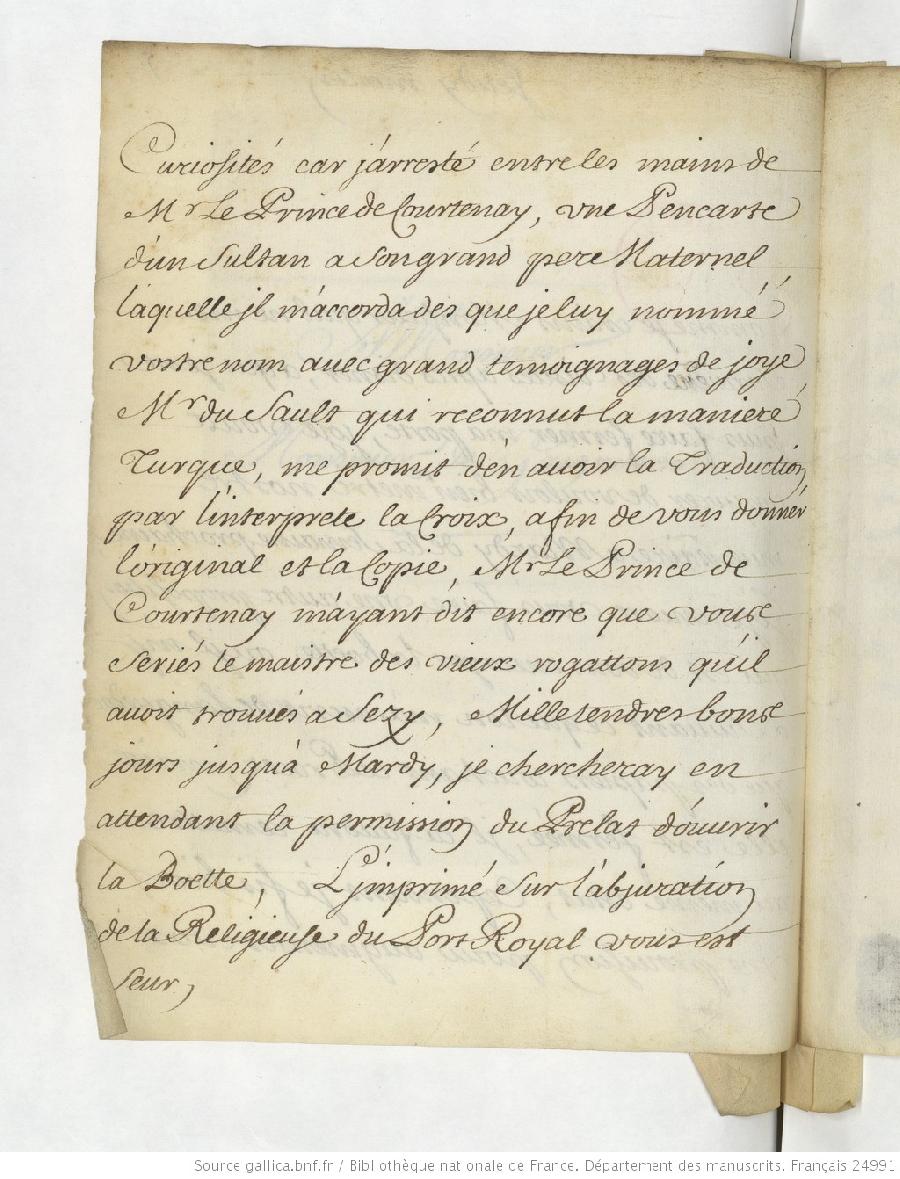 Curiosités car j'arresté entre les mains de
Mr Le Prince de Courtenay, vne Pencarte
d'un Sultan a son grand pere Maternel
laquelle jl m'accorda des que je luy nommé
vostre nom avec grand temoignages de joye
Mr du Sault qui reconnut la maniere
Turque, me promit d'en auoir la Traduction
par l'interprete la Croix, afin de vous donner
l'original et la Copie, Mr Le Prince de
Courtenay m'ayant dit encore que vous
seriés le maistre des vieux rogattons qu'il
auoit trouués a Sezy, Mille tendres bons
jours jusqu'à Mardy, je chercheray en
attendant la permission du Prelat d'ouurir
la Boette, L'jmprimé sur l'abjuration
de la Religieuse du Port Royal vous est
seur,
Source gallica.bnf.fr / Bibliothèque nationale de France. Département des manuscrits. Français 24991